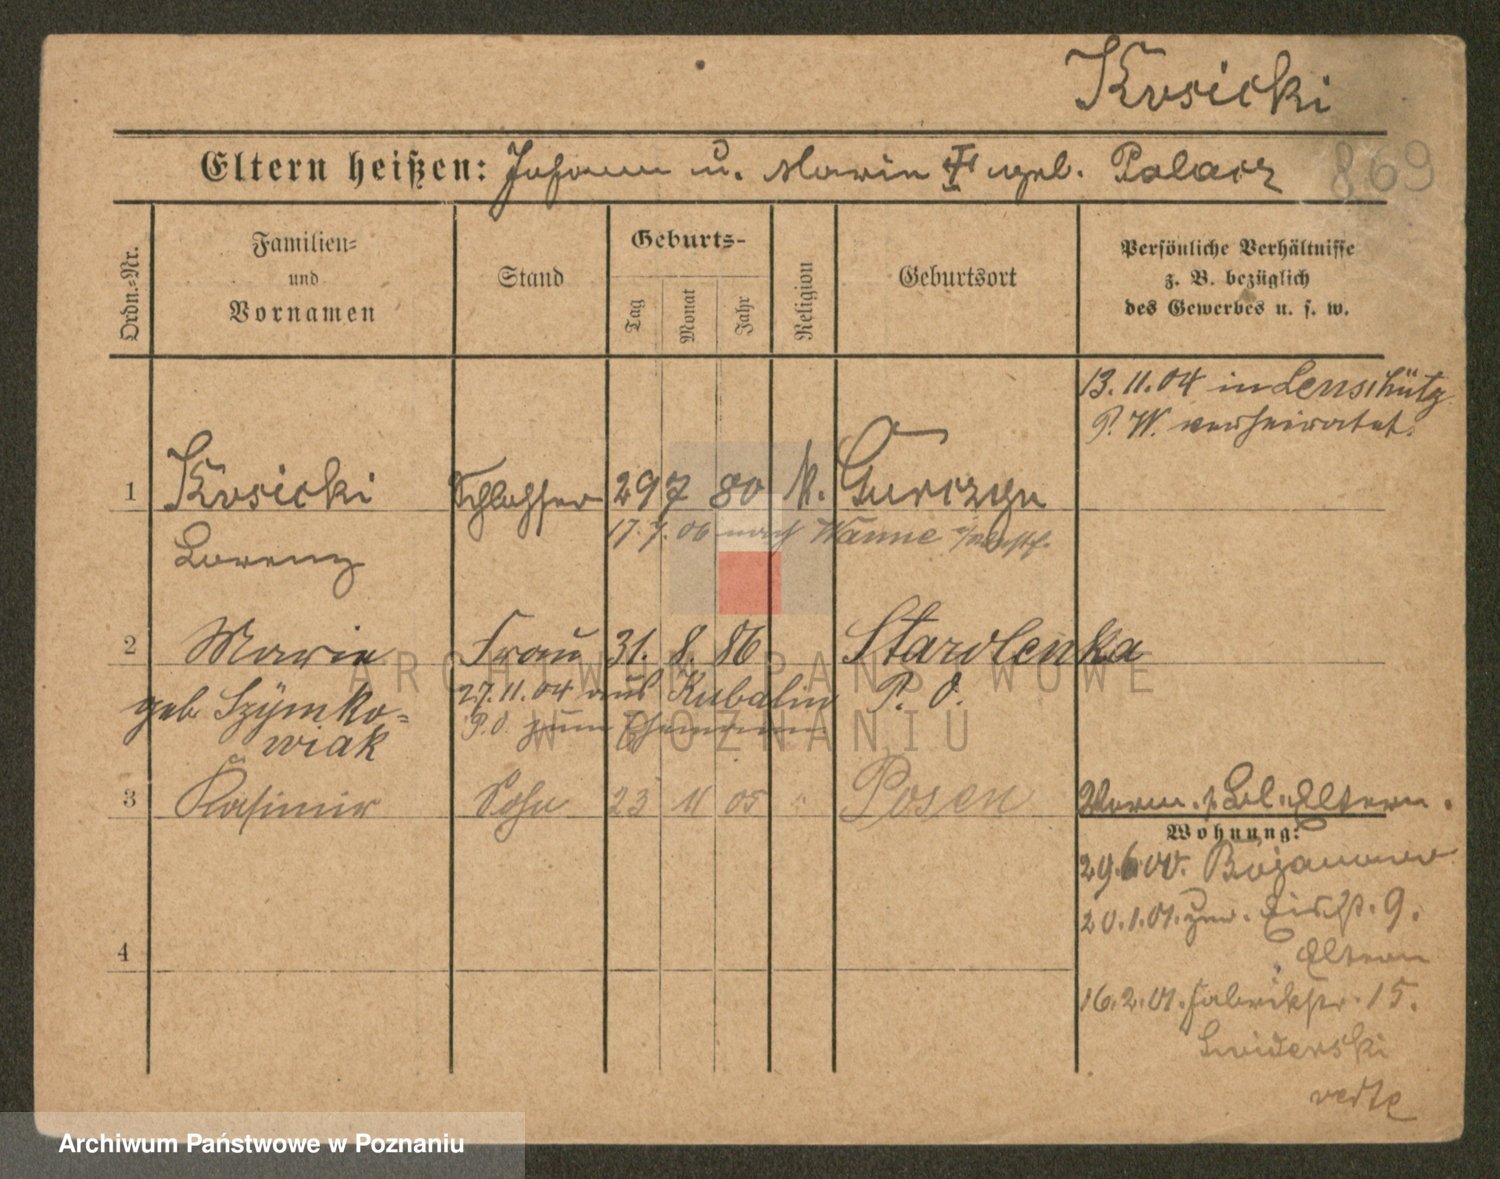 Kosicki
Eltern heißen: Johann u. Marie geb. Palacz
869
Ordn.-Nr.
Familien-
und
Vornamen
Stand
Geburts-
Tag
Monat
Jahr
Religion
Geburtsort
Persönliche Verhältnisse
z. B. bezüglich
des Gewerbes u. s. w.
13.11.04 in Lenschütz
P. W. verheiratet.
1 Kosicki Schlosser 29 7 80 k. Gurczyn
17.7.06 nach Wanne
Lorenz
2 Marie Frau 31. 8. 86 Starolenka
geb Szymko- 27.11.04 aus Kubalin P. O.
wiak P.O. zum Ehemann
3 Kasimir Sohn 23 11 05 " Posen
Eltern.
Wohnung:
29.6.00. Bojanowo
20.1.01. 9.
Eltern
4
16.2.01. Fabrikstr. 15.
Swiderski
verte
ARCHIWUM PAŃSTWOWE
W POZNANIU
Archiwum Państwowe w Poznaniu